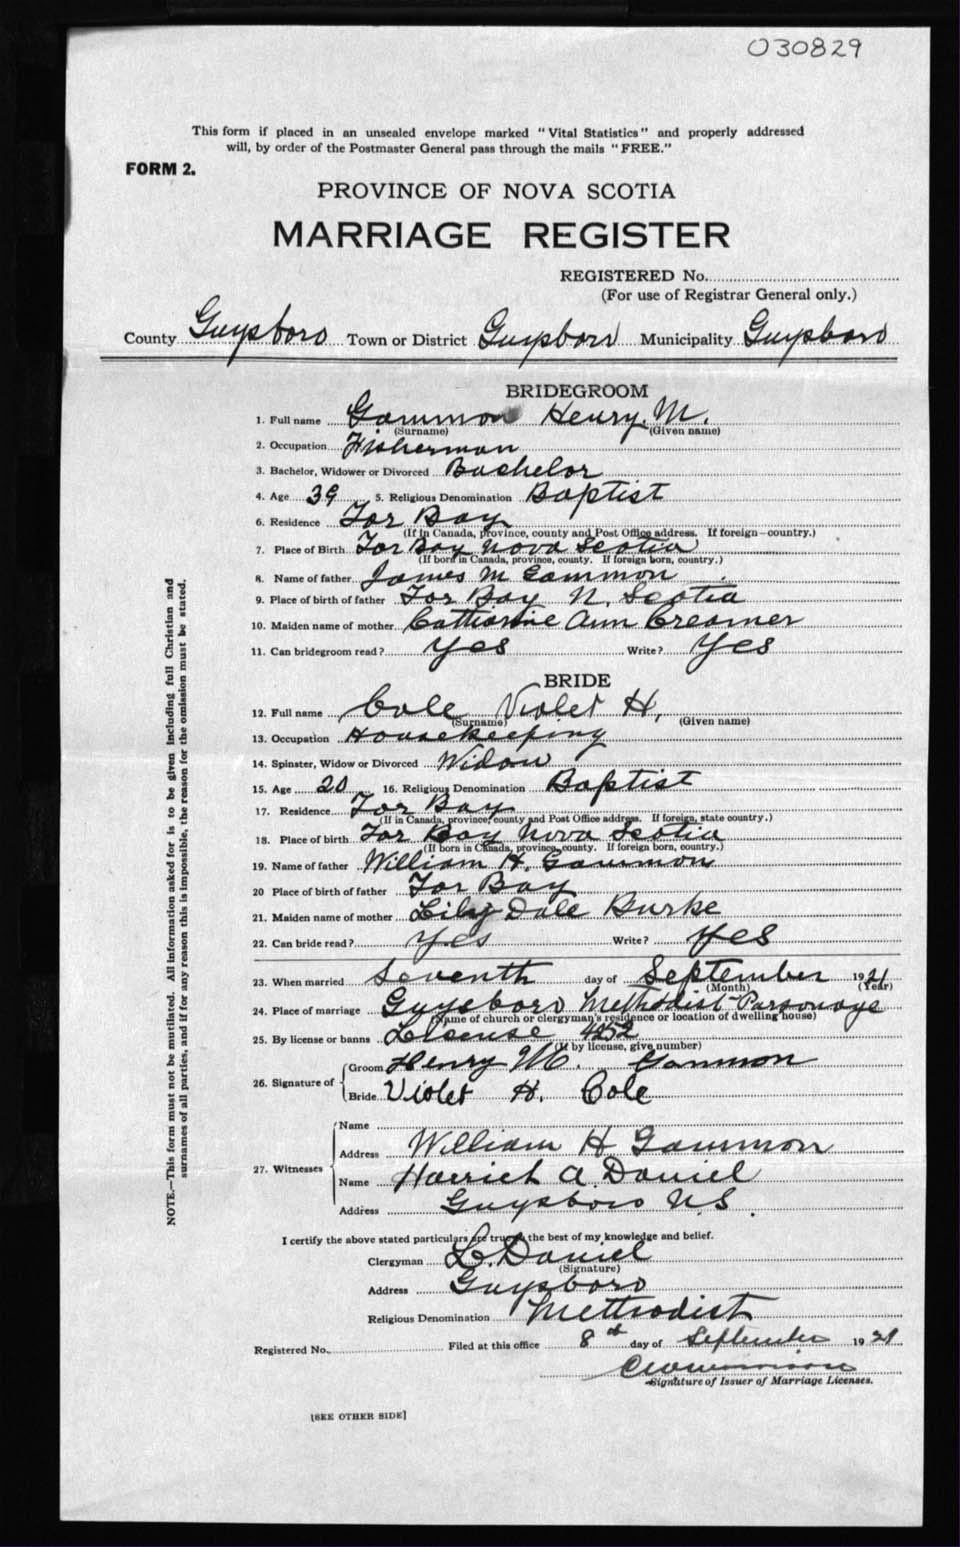 030829
This form if placed in an unsealed envelope marked "Vital Statistics" and properly addressed
will, by order of the Postmaster General pass through the mails "FREE."
FORM 2.
PROVINCE OF NOVA SCOTIA
MARRIAGE REGISTER
REGISTERED No.
(For use of Registrar General only.)
County Guysboro Town or District Guysboro Municipality Guysboro
BRIDEGROOM
1. Full name Gammon Henry. M.
(Surname) (Given name)
2. Occupation Fisherman
3. Bachelor, Widower or Divorced Bachelor
4. Age 39 5. Religious Denomination Baptist
6. Residence Tor Bay
(If in Canada, province, county and Post Office address. If foreign—country.)
7. Place of Birth Tor Bay Nova Scotia
(If born in Canada, province, county. If foreign born, country.)
8. Name of father James M Gammon
9. Place of birth of father Tor Bay N. Scotia
10. Maiden name of mother Catharine Ann Creamer
11. Can bridegroom read? Yes Write? Yes
BRIDE
12. Full name Cole Violet H.
(Surname) (Given name)
13. Occupation Housekeeping
14. Spinster, Widow or Divorced Widow
15. Age 20 16. Religious Denomination Baptist
17. Residence Tor Bay
(If in Canada, province, county and Post Office address. If foreign, state country.)
18. Place of birth Tor Bay Nova Scotia
(If born in Canada, province, county. If foreign born, country.)
19. Name of father William H. Gammon
20 Place of birth of father Tor Bay
21. Maiden name of mother Lily Dale Burke
22. Can bride read? Yes Write? Yes
23. When married Seventh day of September 1921
(Month) (Year)
24. Place of marriage Guysboro Methodist Parsonage
(Name of church or clergyman's residence or location of dwelling house)
25. By license or banns License 4252
(If by license, give number)
26. Signature of Groom Henry M. Gammon
Bride Violet H. Cole
27. Witnesses Name
Address William H Gammon
Name Harriet A. Daniel
Address Guysboro N.S.
I certify the above stated particulars are true to the best of my knowledge and belief.
Clergyman L. Daniel
(Signature)
Address Guysboro
Religious Denomination Methodist
Registered No. Filed at this office 8th day of September 1921
Signature of Issuer of Marriage Licenses.
[SEE OTHER SIDE]
NOTE.—This form must not be mutilated. All information asked for is to be given including full Christian and
surnames of all parties, and if for any reason this is impossible, the reason for the omission must be stated.